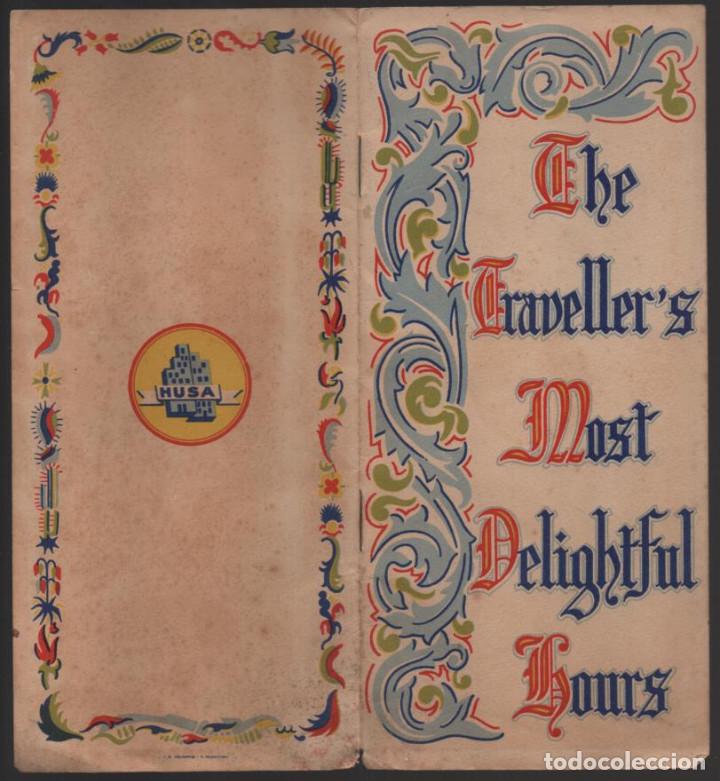 HUSA
The
Traveller's
Most
Delightful
Hours
todocoleccion.net